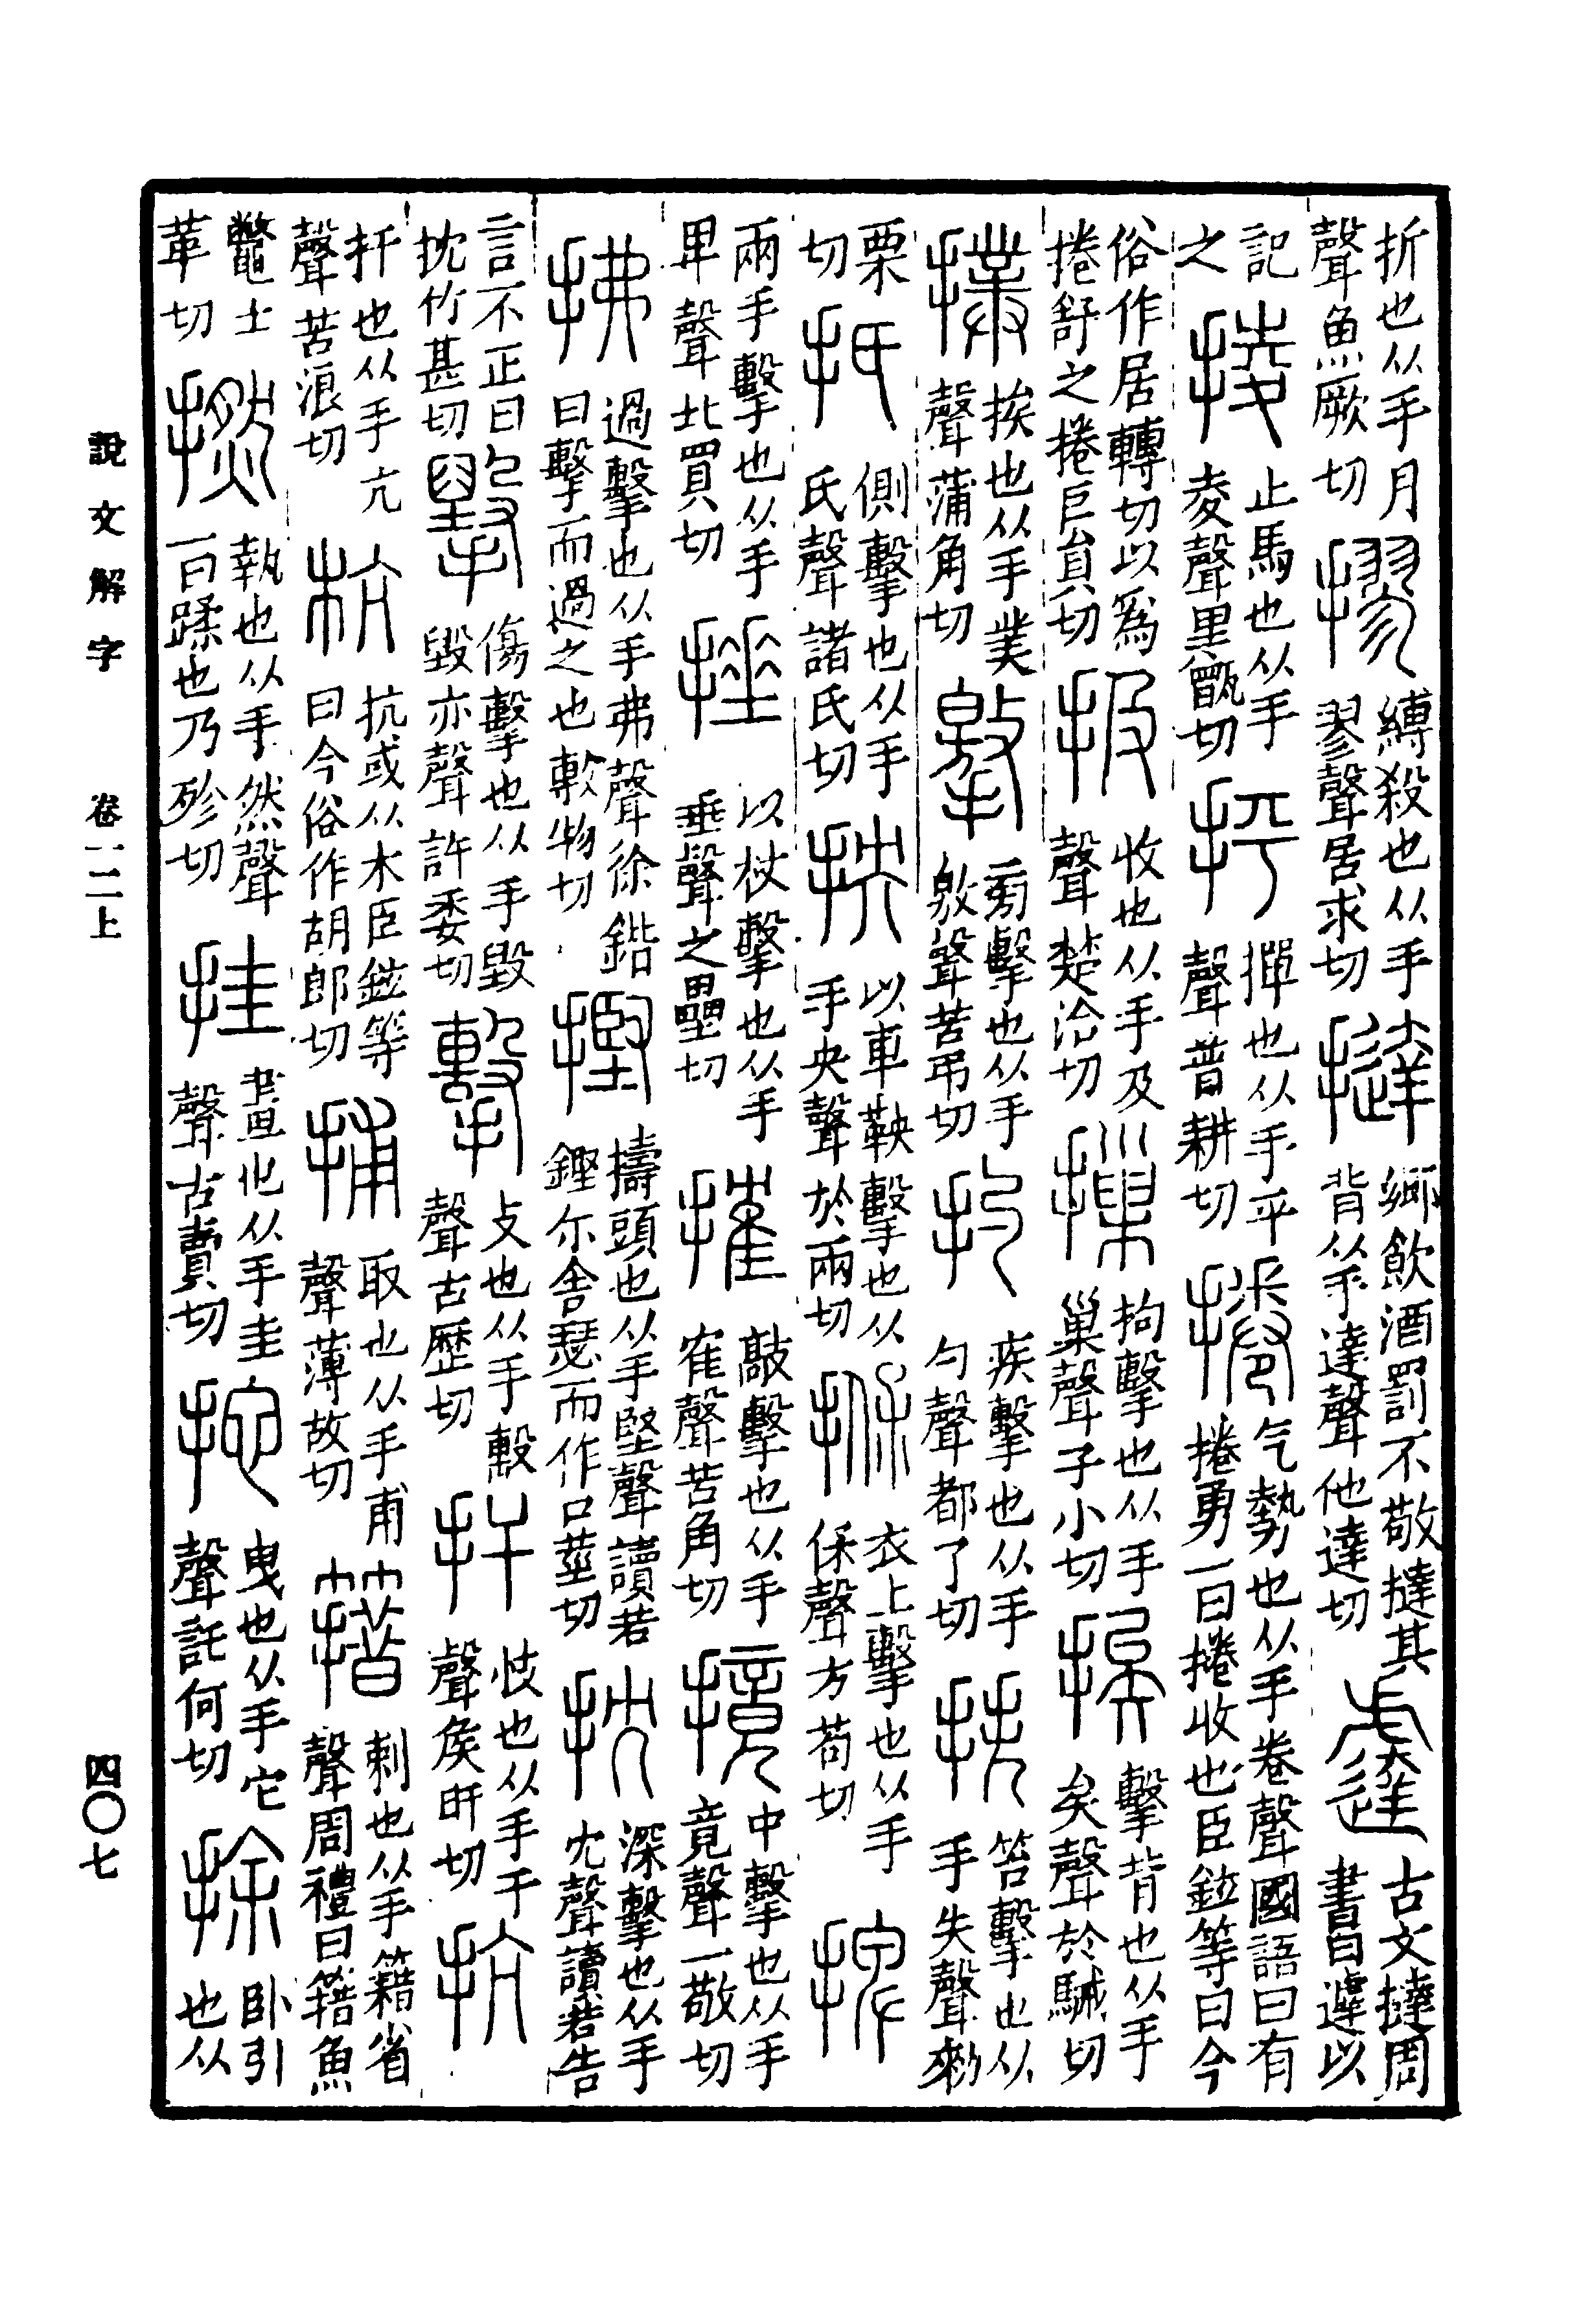 折也从手月聲魚厥切摎縛殺也从手翏聲居求切撻鄉飲酒罰不敬撻其背从手達聲他達切𨘷古文撻周書曰遽以
記之㨋止馬也从手夌聲里甑切抨撣也从手平聲普耕切捲气勢也从手卷聲國語曰有捲勇一曰捲收也臣鉉等曰今
俗作居轉切以爲捲舒之捲巨員切扱收也从手及聲楚洽切摷拘擊也从手巢聲子小切挨擊背也从手矣聲於駭切
撲挨也从手菐聲蒲角切擎旁擊也从手敫聲苦弔切扚疾擊也从手勺聲都了切抶笞擊也从手失聲勑
栗切扺側擊也从手氏聲諸氏切抰以車鞅擊也从手央聲於兩切㨐衣上擊也从手保聲方苟切捭
兩手擊也从手卑聲北買切捶以杖擊也从手垂聲之壘切搉敲擊也从手隺聲苦角切摬中擊也从手竟聲一敬切
拂過擊也从手弗聲徐鍇曰擊而過之也敷物切摼擣頭也从手堅聲讀若鏗尒舍瑟而作口莖切抌深擊也从手冘聲讀若告
言不正曰抌竹甚切㩓傷擊也从手毀毀亦聲許委切擊攴也从手毄聲古歷切扞忮也从手干聲矦旰切抗
扞也从手亢聲苦浪切杭抗或从木臣鉉等曰今俗作胡郎切捕取也从手甫聲薄故切簎刺也从手籍省聲周禮曰籍魚
鼈士革切撚執也从手然聲一曰蹂也乃殄切挂畫也从手圭聲古賣切拕曳也从手它聲託何切捈卧引也从
說文解字 卷一二上 四〇七